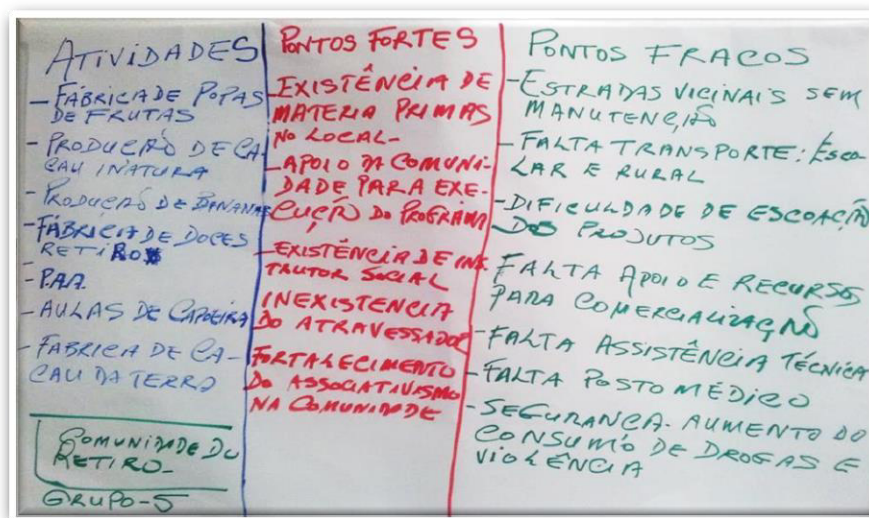 ATIVIDADES
- FÁBRICA DE POPAS
DE FRUTAS
- PRODUCÃO DE CA-
CAU INATURA
- PRODUCÃO DE BANANAS
- FÁBRICA DE DOCES
RETIRO
- P.A.A.
- AULAS DE CAPOEIRA
- FABRICA DE CA-
CAU DA TERRA
COMUNIDADE DU
RETIRO-
GRUPO-5
PONTOS FORTES
- EXISTÊNCIA DE
MATERIA PRIMAS
NO LOCAL-
- APOIO DA COMUNI-
DADE PARA EXE-
CUÇÃO DO PROGRAMA
- EXISTÊNCIA DE INS
TRUTOR SOCIAL
INEXISTENCIA
DO ATRAVESSADOR
FORTALECIMENTO
DO ASSOCIATIVISMO
NA COMUNIDADE
PONTOS FRACOS
- ESTRADAS VICINAIS SEM
MANUTENÇÃO
- FALTA TRANSPORTE: ESCO-
LAR E RURAL
- DIFICULDADE DE ESCOAÇÃO
DOS PRODUTOS
FALTA APOIO E RECURSOS
PARA COMERCIALIZAÇÃO
- FALTA ASSISTÊNCIA TÉCNICA
- FALTA POSTO MÉDICO
- SEGURANCA- AUMENTO DO
CONSUMO DE DROGAS E
VIOLÊNCIA